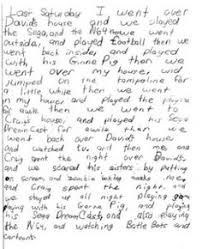 Last Saturday I went over
Davids house and we played
the Sega, and the N64 house went
outside, and played football then we
went back inside and played
with his Ginne Pig then we
went over my house, and
jumped on the tampoline for
a little while then we went
in my house and played the
for awile then we went to
Craigs house, and played his Sega
DreamCast for awile then we
went back over Davids house
and watched t.v. and then me and
Craig spent the night over Davids.
we scared his sisters by putting
on scream and zombie
and Craig spent the night, and
we stayed up all night playing
playing with his Gerria Pig, and playing
his Sega DreamCast, and also playing
the N64, and watching Battle Bots and